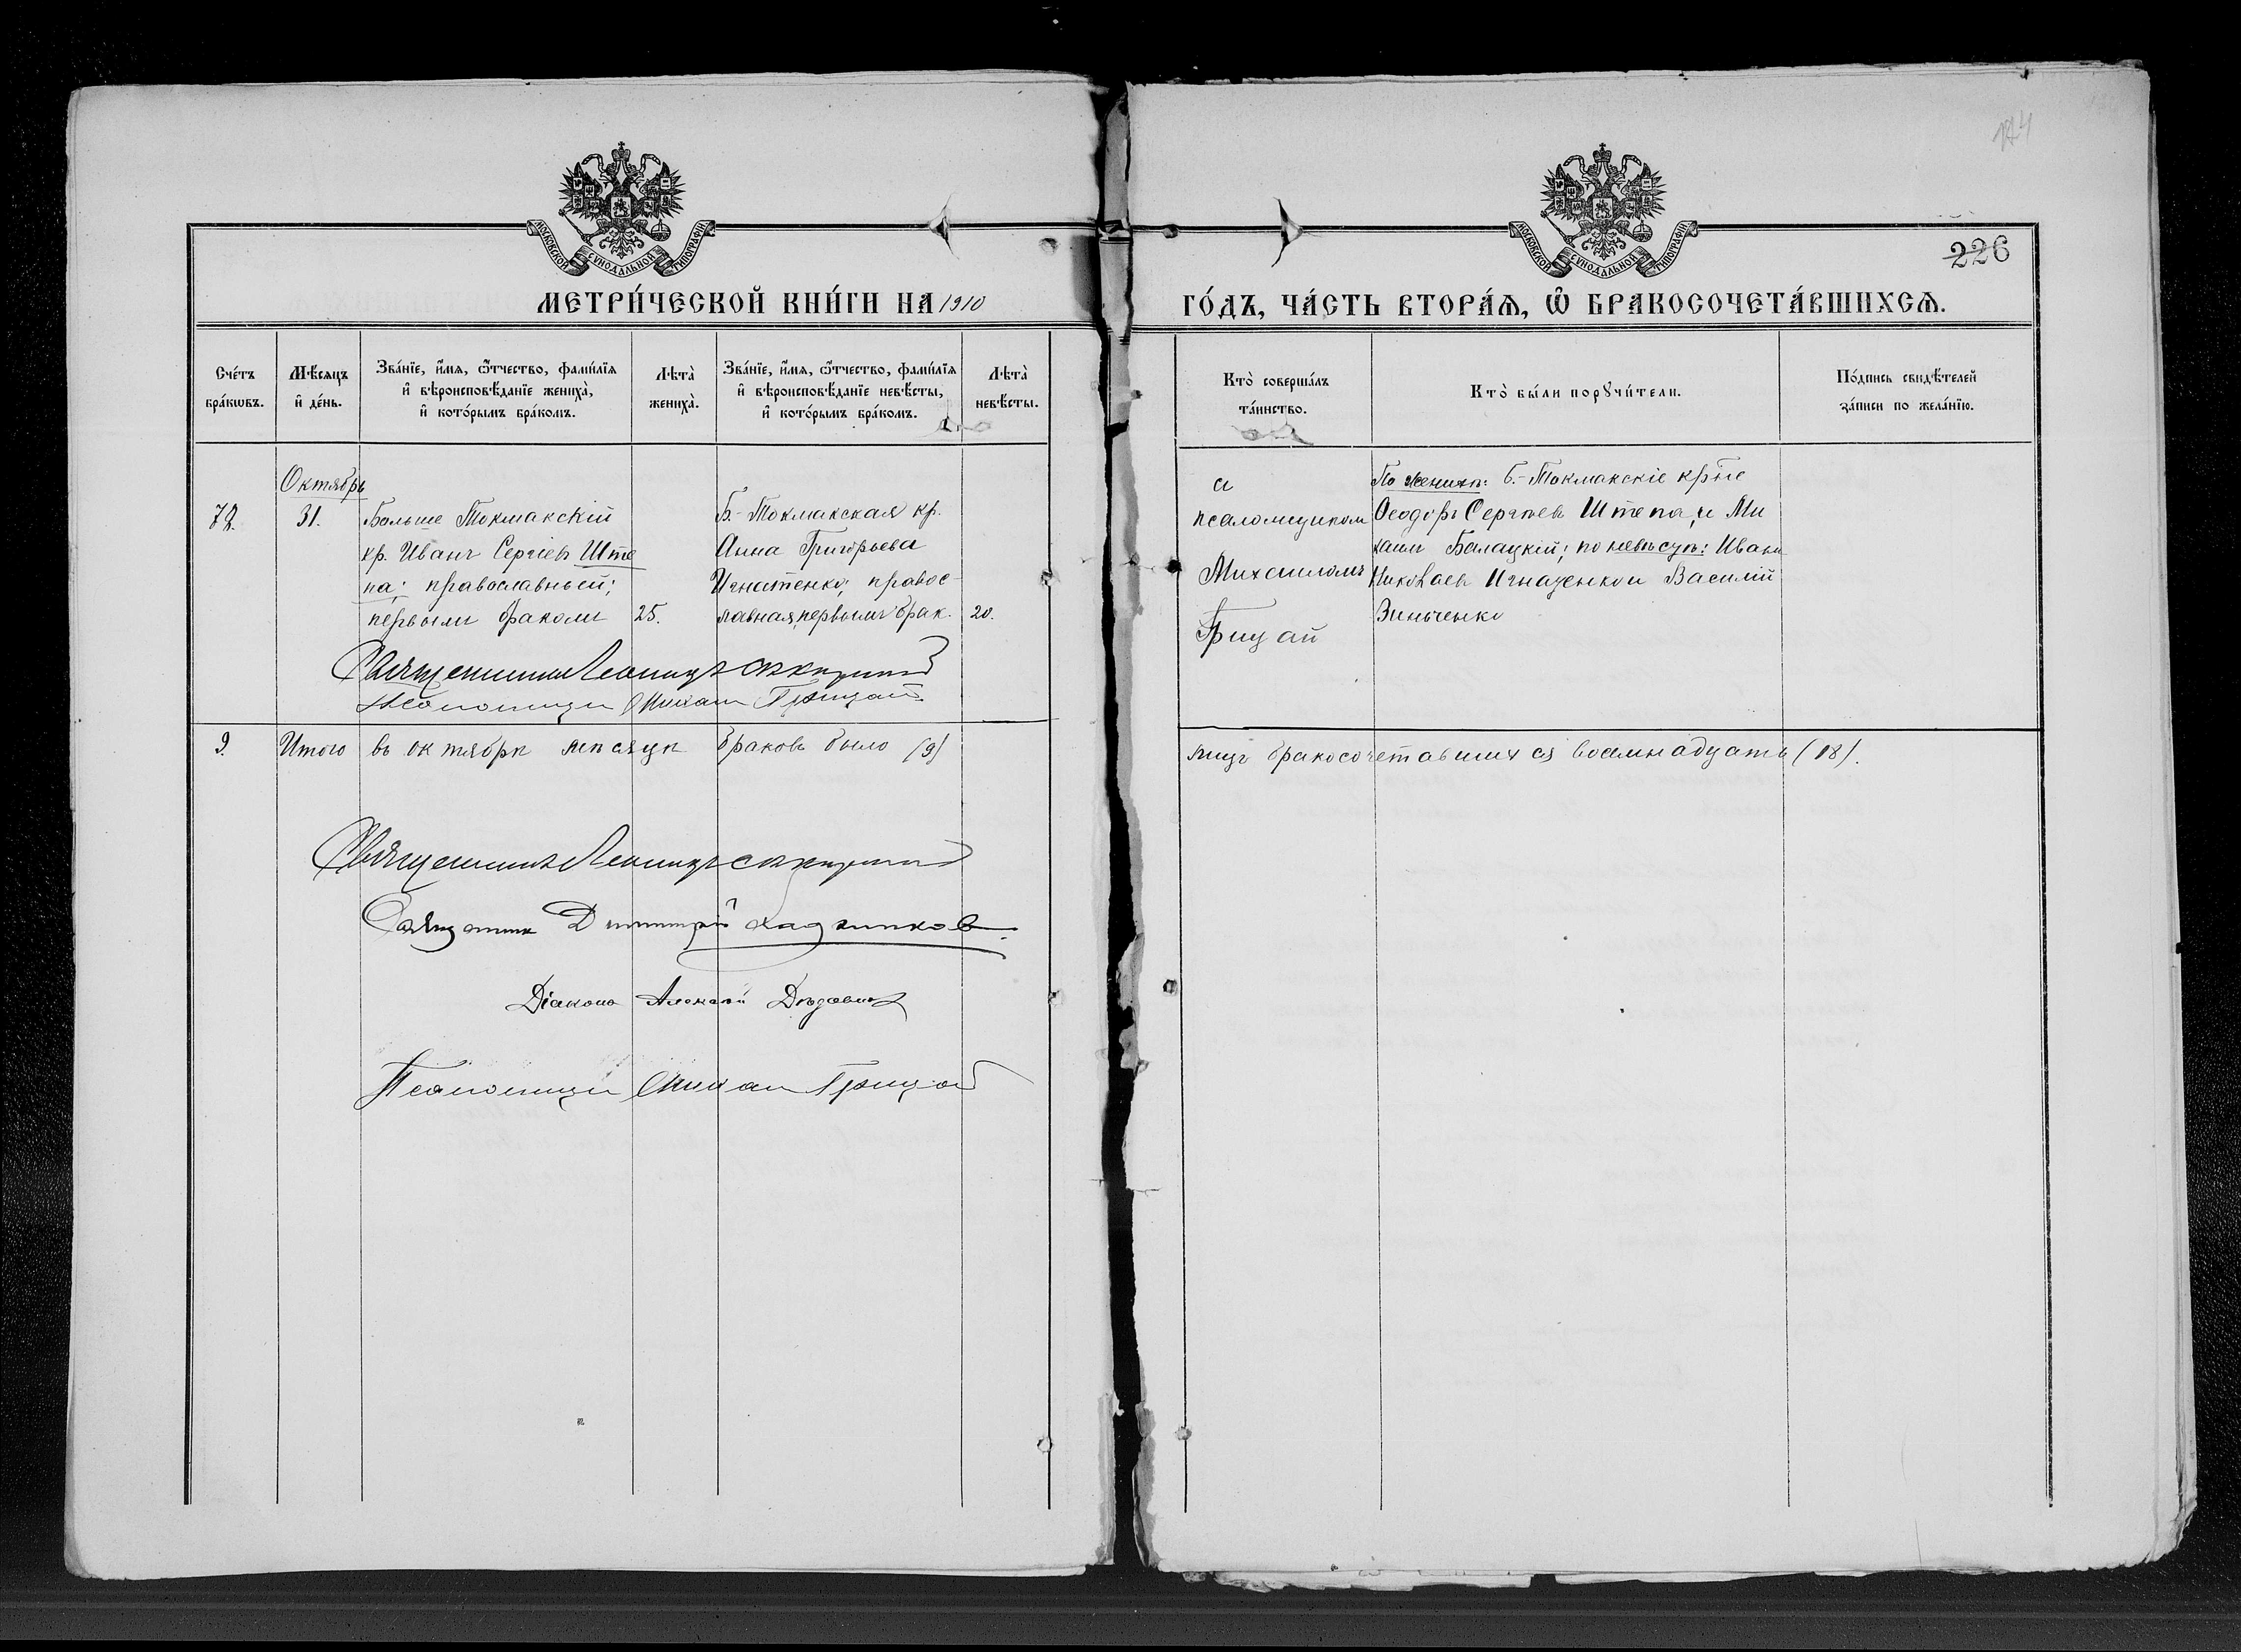 144
МОСКОВСКОЙ СУНОДАЛЬНОЙ ТИПОГРАФІИ
МОСКОВСКОЙ СУНОДАЛЬНОЙ ТИПОГРАФІИ
226
МЕТРИ́ЧЕСКОЙ КНИ́ГИ НА 1910
ГО́ДЪ, ЧА́СТЬ ВТОРА́Ѧ, Ѽ БРАКОСОЧЕТА́ВШИХСѦ.
Сче́тъ бра́кѡвъ.
Мѣ́сяцъ и҆ де́нь.
Зва́нїе, и҆́мя, ѻ҆́тчество, фами́лїя
и҆ вѣроисповѣ́данїе жениха̀,
и҆ кото́рымъ бра́комъ.
Лѣта̀ жениха̀.
Зва́нїе, и҆́мя, ѻ҆́тчество, фами́лїя
и҆ вѣроисповѣ́данїе невѣ́сты,
и҆ кото́рымъ бра́комъ.
Лѣта̀ невѣ́сты.
Кто̀ соверша́лъ
та́инство.
Кто̀ бы́ли порꙋчи́тели.
По́дпись свидѣ́телей
за́писи по жела́нїю.
Октябрь
72. 31.
Больше Токмакскій
кр. Иванъ Сергіевъ Ште
па; православный;
первымъ бракомъ 25.
Б.-Токмакская кр.
Анна Григорьева
Игнатенко; правос-
лавная, первымъ брак. 20.
и
псаломщикомъ
Михаиломъ
Грицай
По женихѣ: Б.-Токмакскіе кр҃не
Ѳеодоръ Сергѣевъ Штепа, и Ми
хаилъ Балацкій; по невѣстѣ: Иванъ
Николаевъ Игнаценко и Василій
Зинченко
Священникъ Леонидъ
Псаломщикъ Михаилъ Грицай
9. Итого въ октябрѣ мѣсяцѣ браковъ было (9)
лицъ бракосочетавшихся восемнадцать (18).
Священникъ Леонидъ
Священникъ Димитрій
Діаконъ Алексѣй
Псаломщикъ Михаилъ Грицай